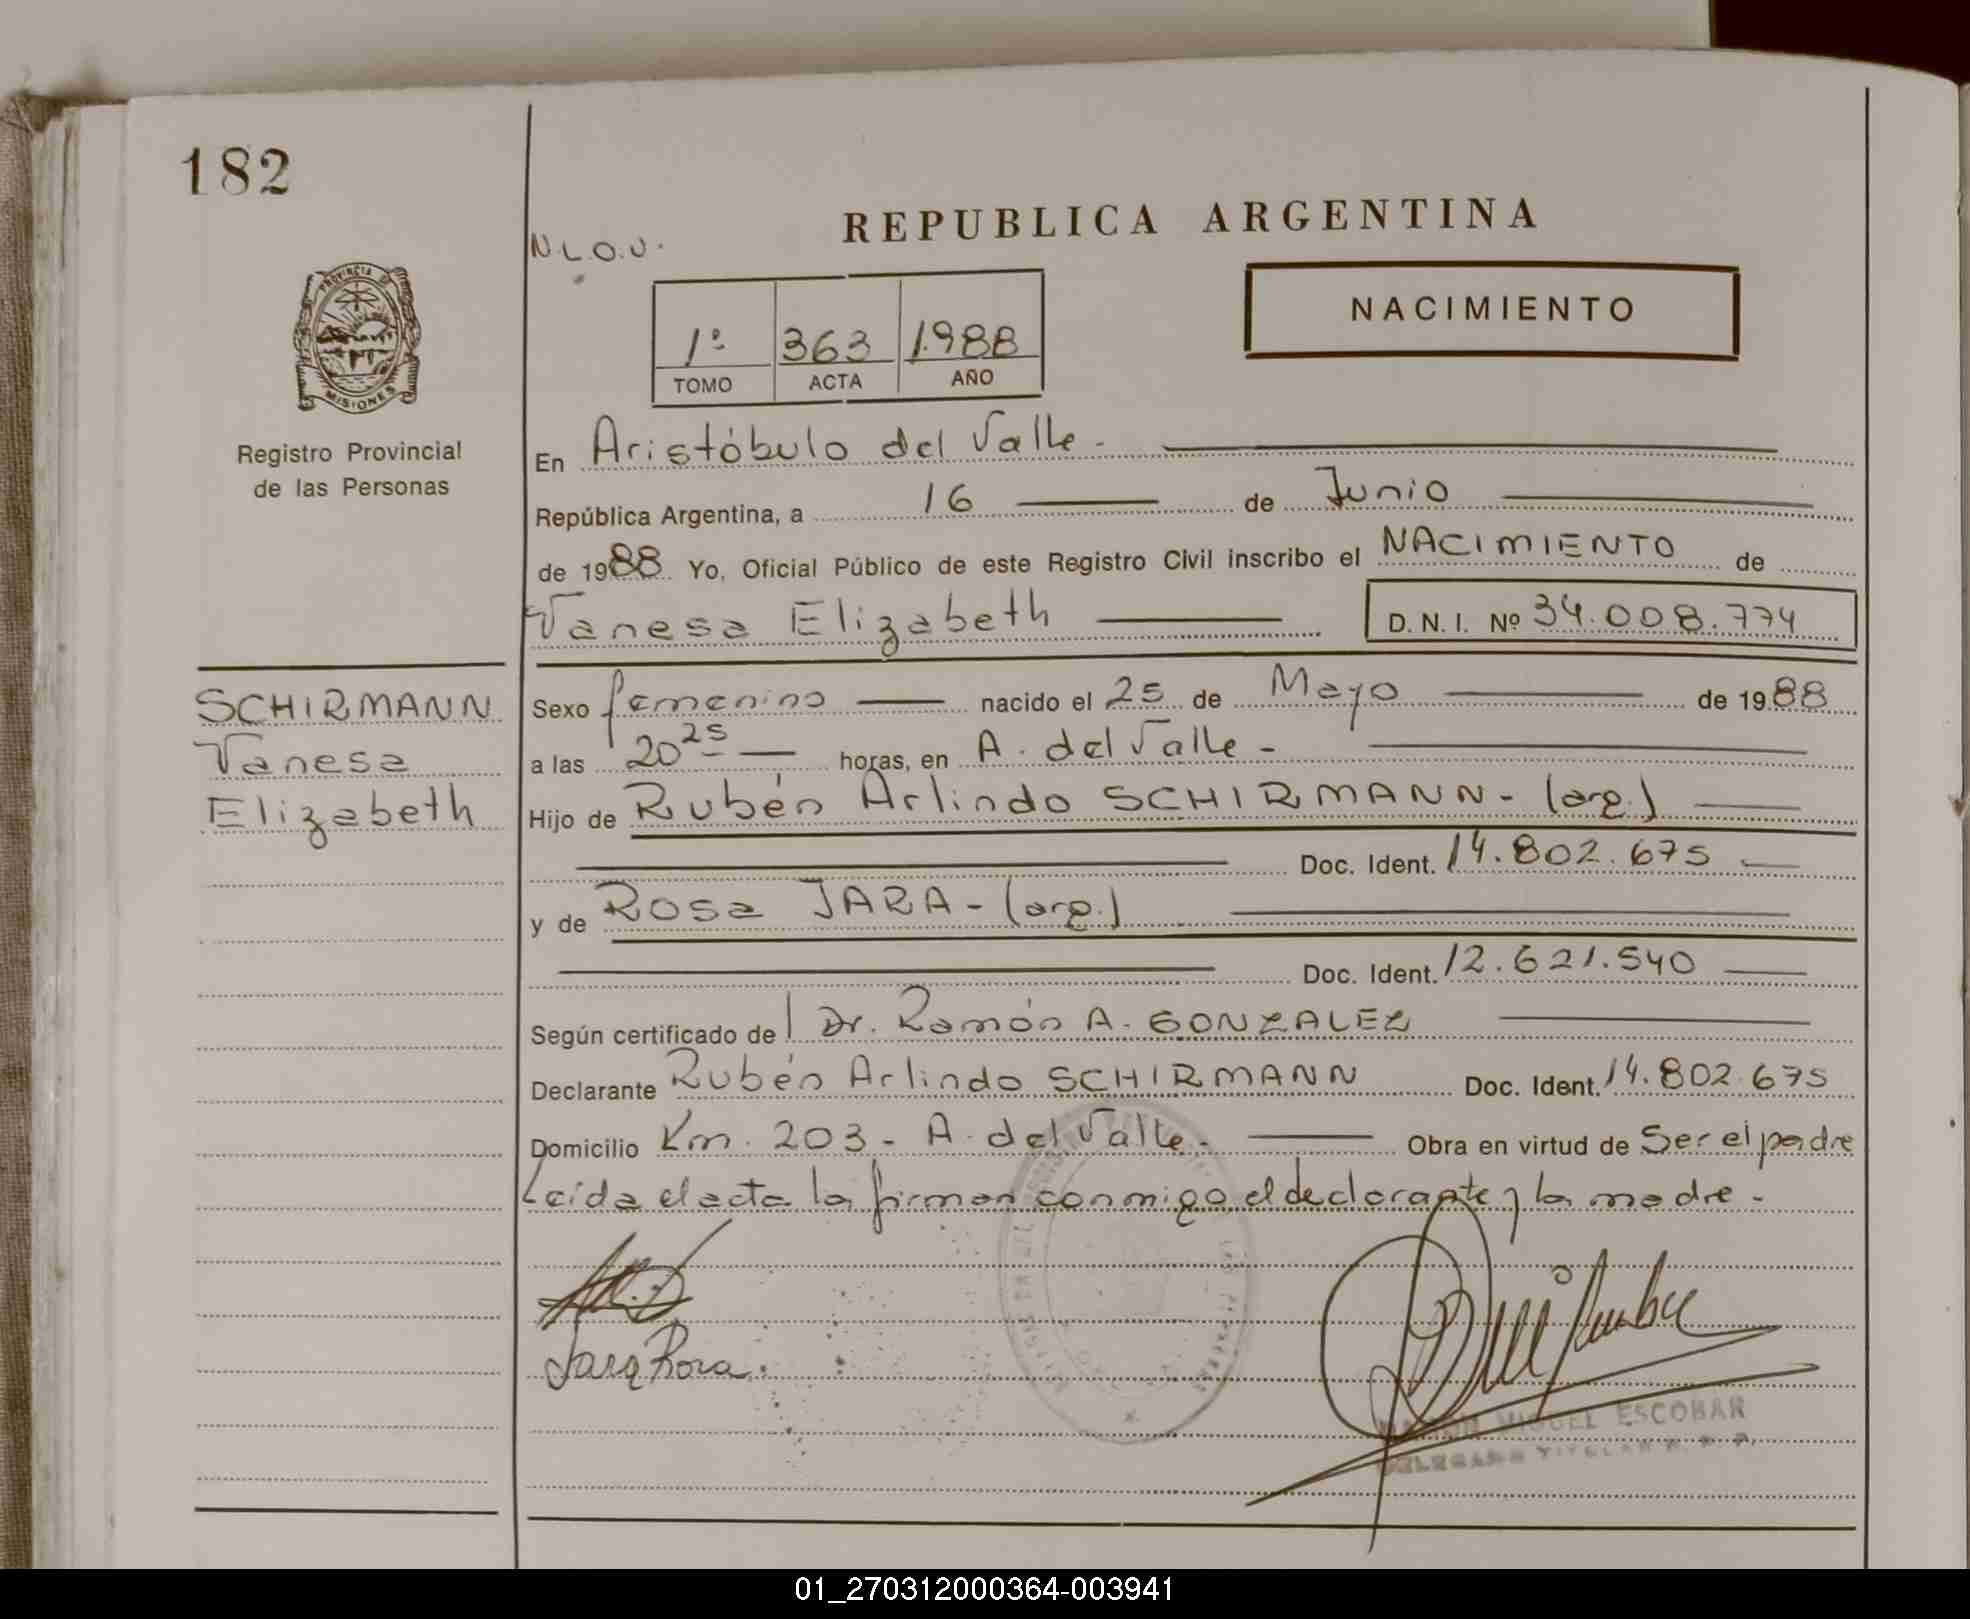 182
REPUBLICA ARGENTINA
N.L.O.U.
PROVINCIA DE
MISIONES
1º 363 1.988
TOMO ACTA AÑO
NACIMIENTO
Registro Provincial
de las Personas
En Aristóbulo del Valle -
República Argentina, a 16 de Junio
de 1988 Yo, Oficial Público de este Registro Civil inscribo el NACIMIENTO de
Vanesa Elizabeth D. N. I. Nº 34.008.774
SCHIRMANN
Vanesa
Elizabeth
Sexo femenino nacido el 25 de Mayo de 1988
a las 20 25 horas, en A. del Valle -
Hijo de Rubén Arlindo SCHIRMANN - (arg.)
Doc. Ident. 14.802.675
y de Rosa JARA - (arg.)
Doc. Ident. 12.621.540
Según certificado de Dr. Ramón A. GONZALEZ
Declarante Rubén Arlindo SCHIRMANN Doc. Ident. 14.802.675
Domicilio Km. 203 - A. del Valle - Obra en virtud de Ser el padre
Leida el acta la firman conmigo el declarante y la madre -
Jara Rosa.
MIGUEL ESCOBAR
01_270312000364-003941